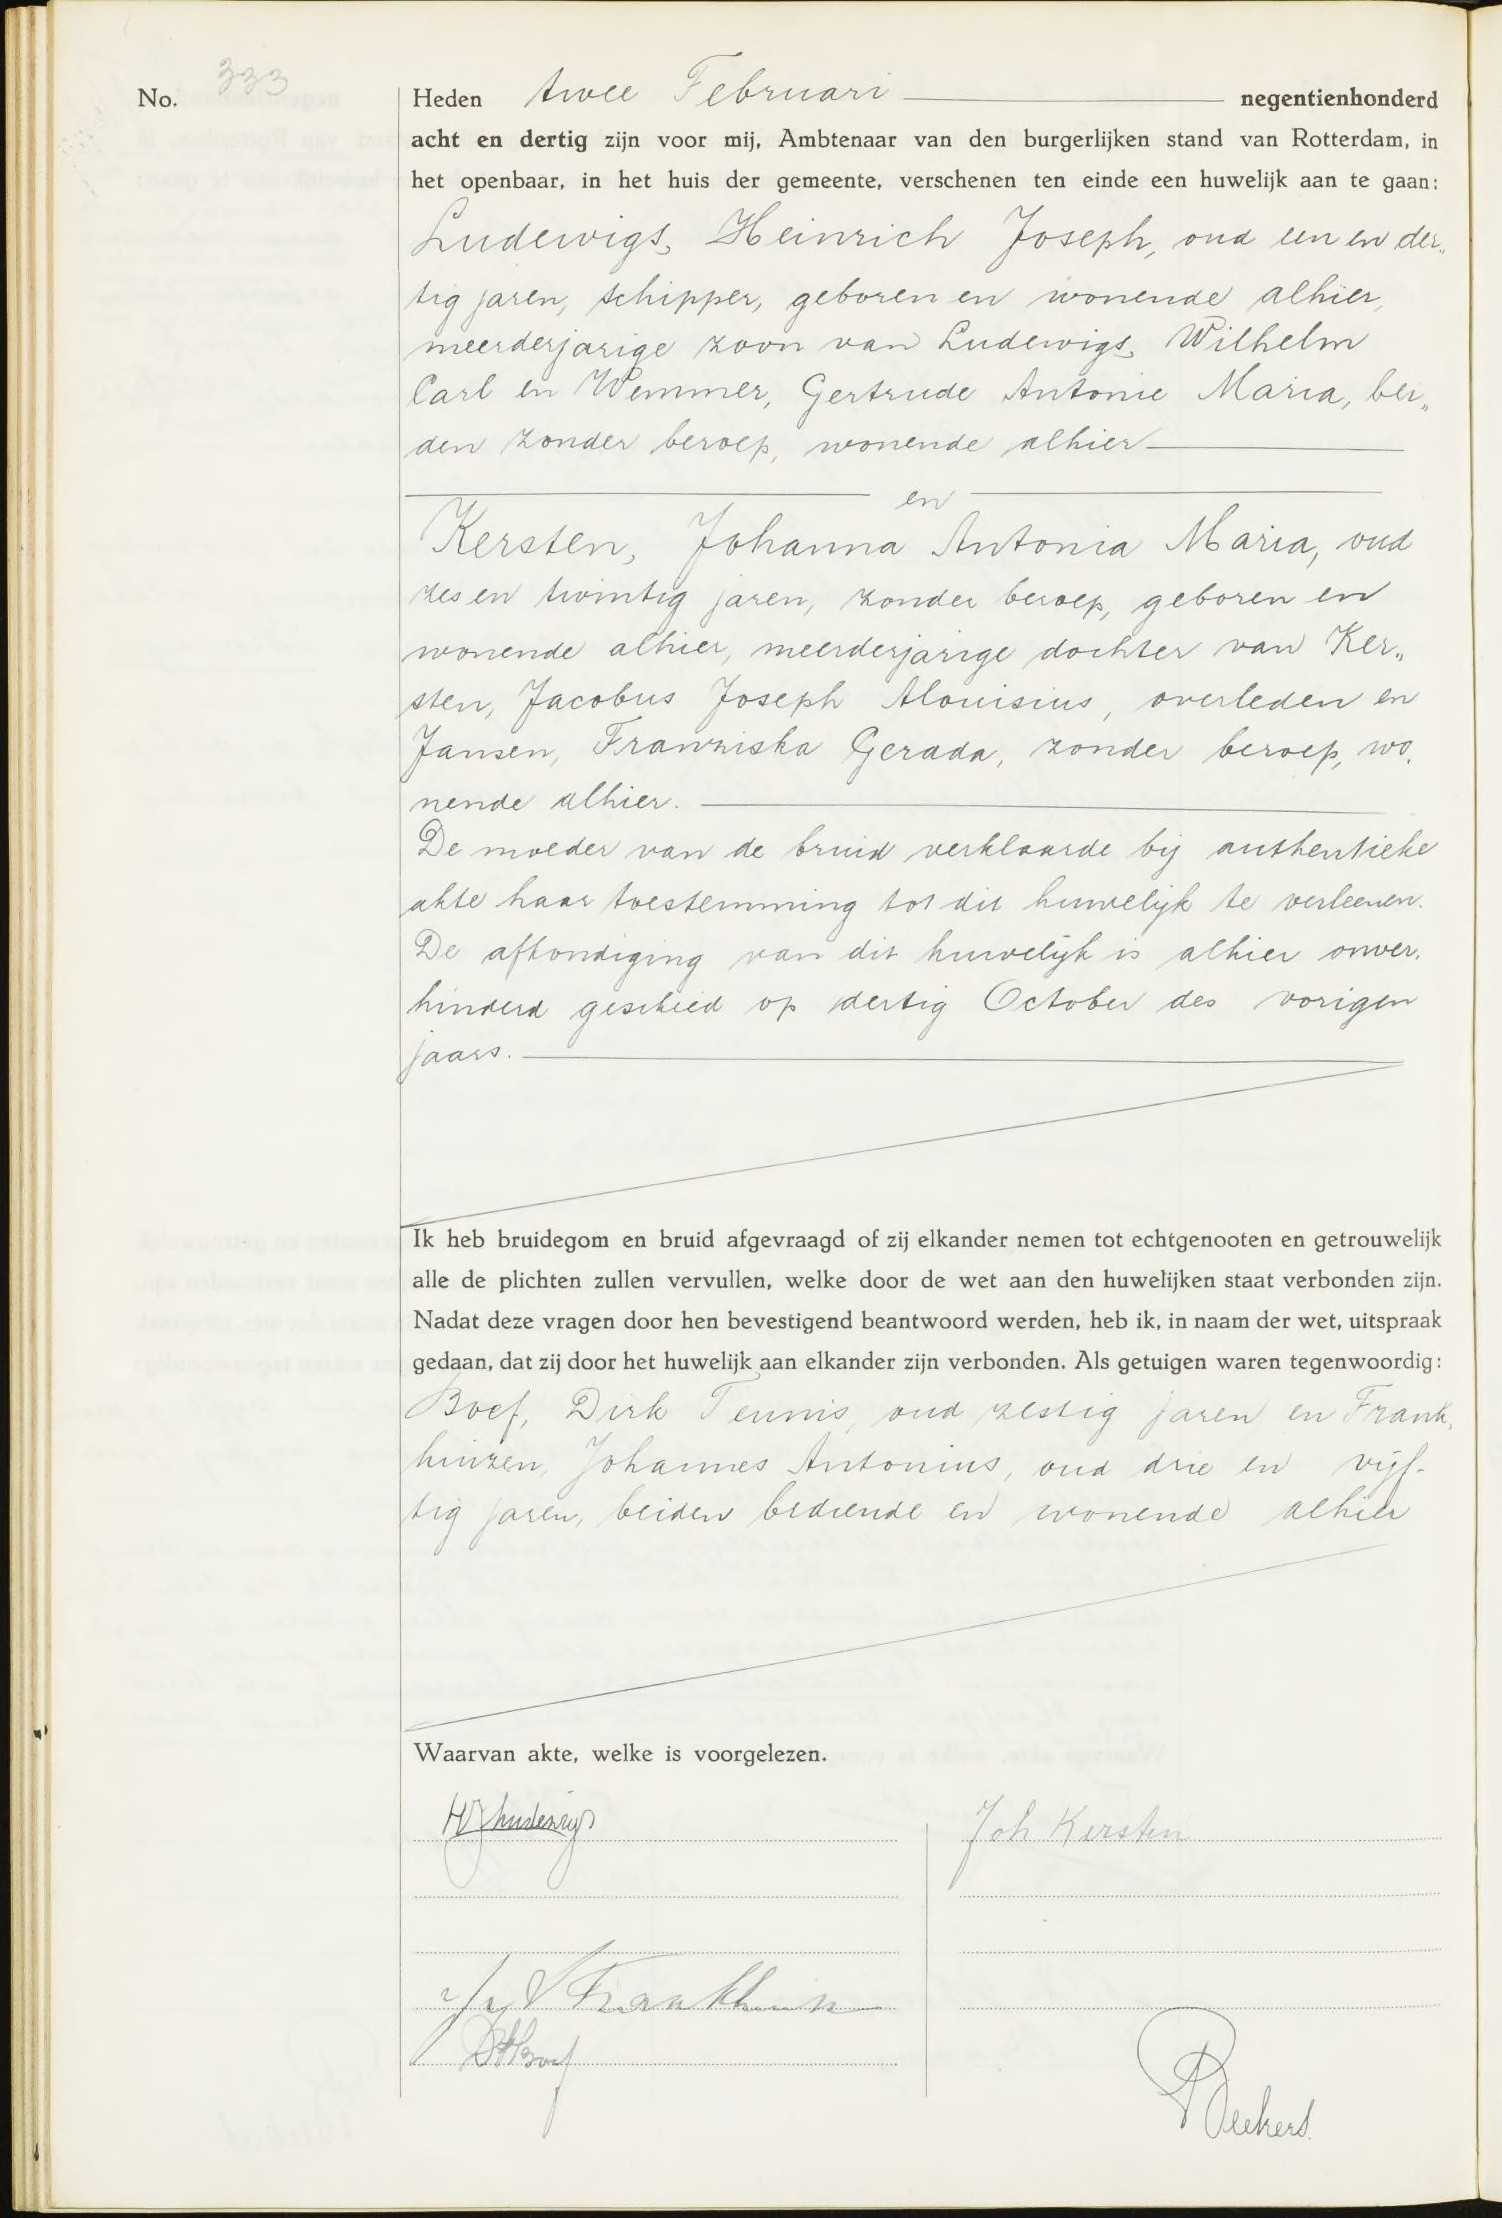 No. 333
Heden twee Februari negentienhonderd
acht en dertig zijn voor mij, Ambtenaar van den burgerlijken stand van Rotterdam, in
het openbaar, in het huis der gemeente, verschenen ten einde een huwelijk aan te gaan:
Ludewigs, Heinrich Joseph, oud een en der„
tig jaren, schipper, geboren en wonende alhier,
meerderjarige zoon van Ludewigs, Wilhelm
Carl en Wemmer, Gertrude Antonie Maria, bei„
den zonder beroep, wonende alhier
en
Kersten, Johanna Antonia Maria, oud
zes en twintig jaren, zonder beroep, geboren en
wonende alhier, meerderjarige dochter van Ker„
sten, Jacobus Joseph Alouisius, overleden en
Jansen, Franziska Gerada, zonder beroep, wo.
nende alhier.
De moeder van de bruid verklaarde bij authentieke
akte haar toestemming tot dit huwelijk te verleenen.
De afkondiging van dit huwelijk is alhier onver.
hinderd geschied op dertig October des vorigen
jaars.
Ik heb bruidegom en bruid afgevraagd of zij elkander nemen tot echtgenooten en getrouwelijk
alle de plichten zullen vervullen, welke door de wet aan den huwelijken staat verbonden zijn.
Nadat deze vragen door hen bevestigend beantwoord werden, heb ik, in naam der wet, uitspraak
gedaan, dat zij door het huwelijk aan elkander zijn verbonden. Als getuigen waren tegenwoordig:
Boef, Dirk Teunis, oud zestig jaren en Frank,
huizen, Johannes Antonius, oud drie en vijf-
tig jaren, beiden bediende en wonende alhier
Waarvan akte, welke is voorgelezen.
HJ Ludewigs
Joh Kersten
Frankhuizen
DT Boef